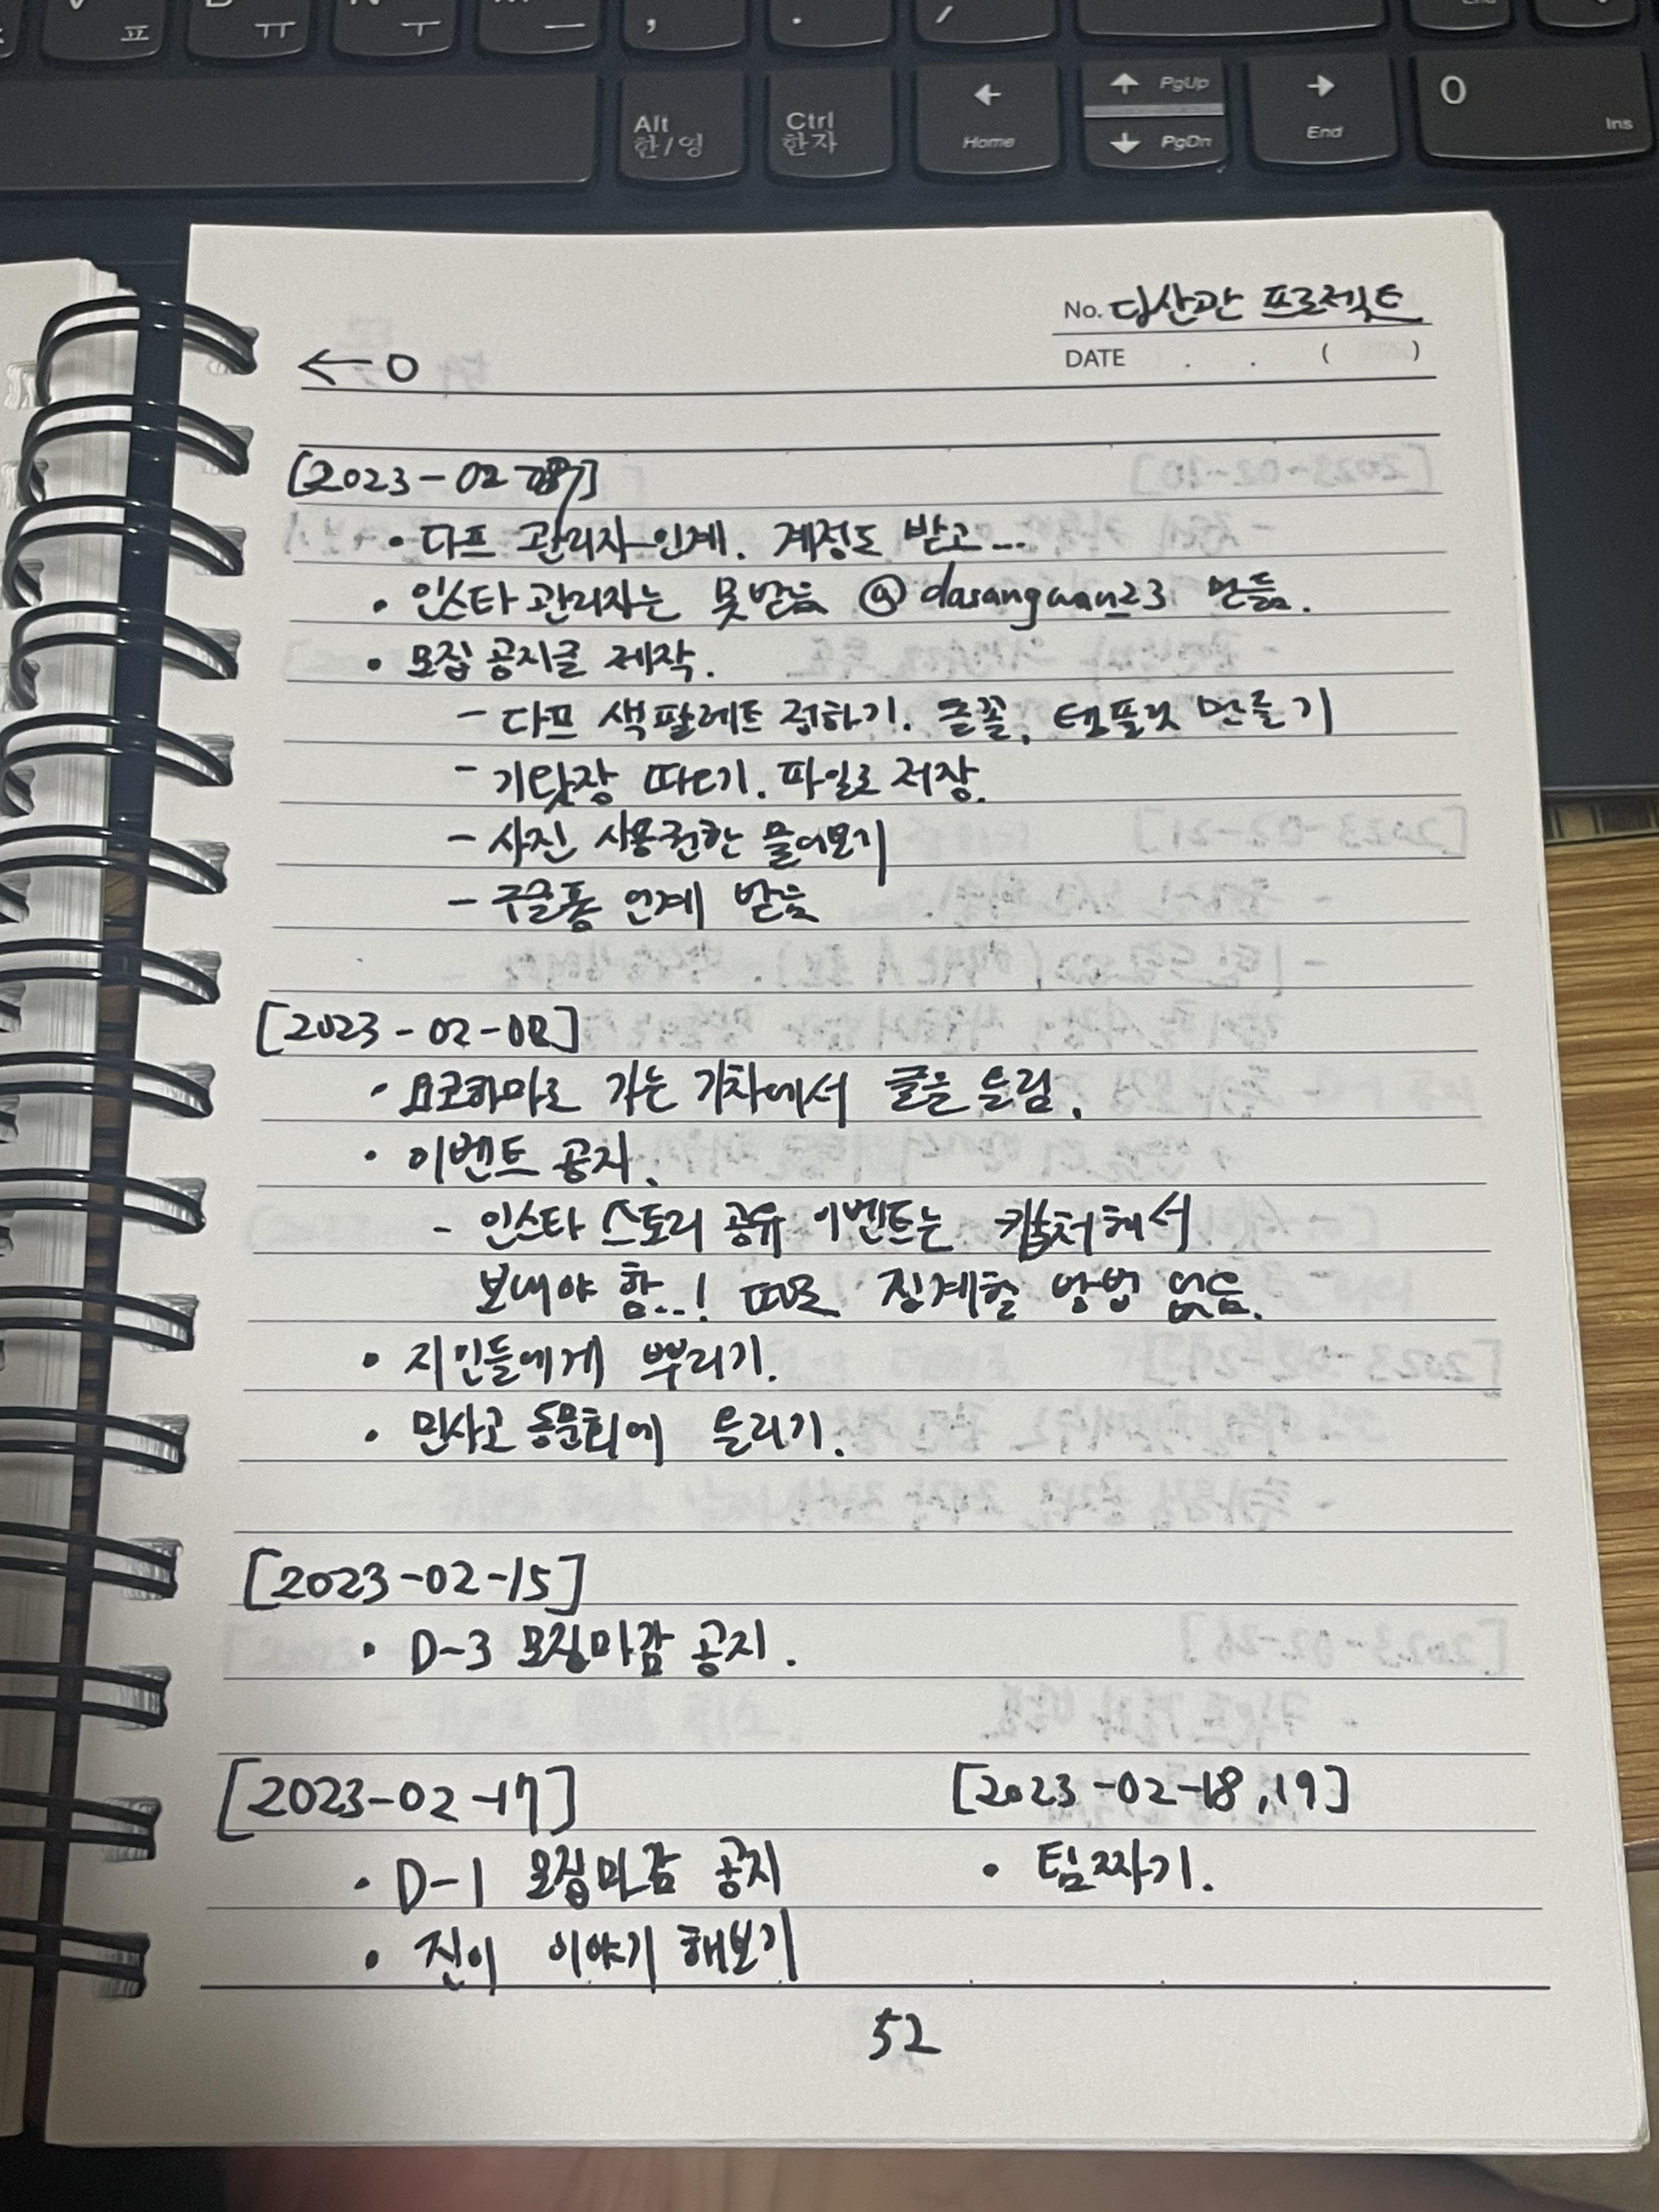 ㅍ ㅠ ㅜ ㅡ , . /
Alt Ctrl ← ↑ PgUp → 0
한/영 한자 Home ↓ PgDn End Ins
No. 다산관 프로젝트
DATE . . ( )
← 0
[2023-02-07]
• 다프 관리자 인계. 계정도 받고...
• 인스타 관리자는 못받음 @dasangwan23 만듦.
• 모집 공지글 제작.
- 다프 색팔레트 정하기. 글꼴, 템플릿 만들기
- 기왓장 따오기. 파일로 저장.
- 사진 사용권한 물어보기
- 구글폼 인계 받음
[2023-02-08]
• 요코하마로 가는 기차에서 글을 올림.
• 이벤트 공지.
- 인스타 스토리 공유 이벤트는 캡처해서
보내야 함..! 따로 집계할 방법 없음.
• 지인들에게 뿌리기.
• 민사고 동문회에 올리기.
[2023-02-15]
• D-3 모집마감 공지.
[2023-02-17]
• D-1 모집마감 공지
• 진이 이야기 해보기
[2023-02-18,19]
• 팀짜기.
52